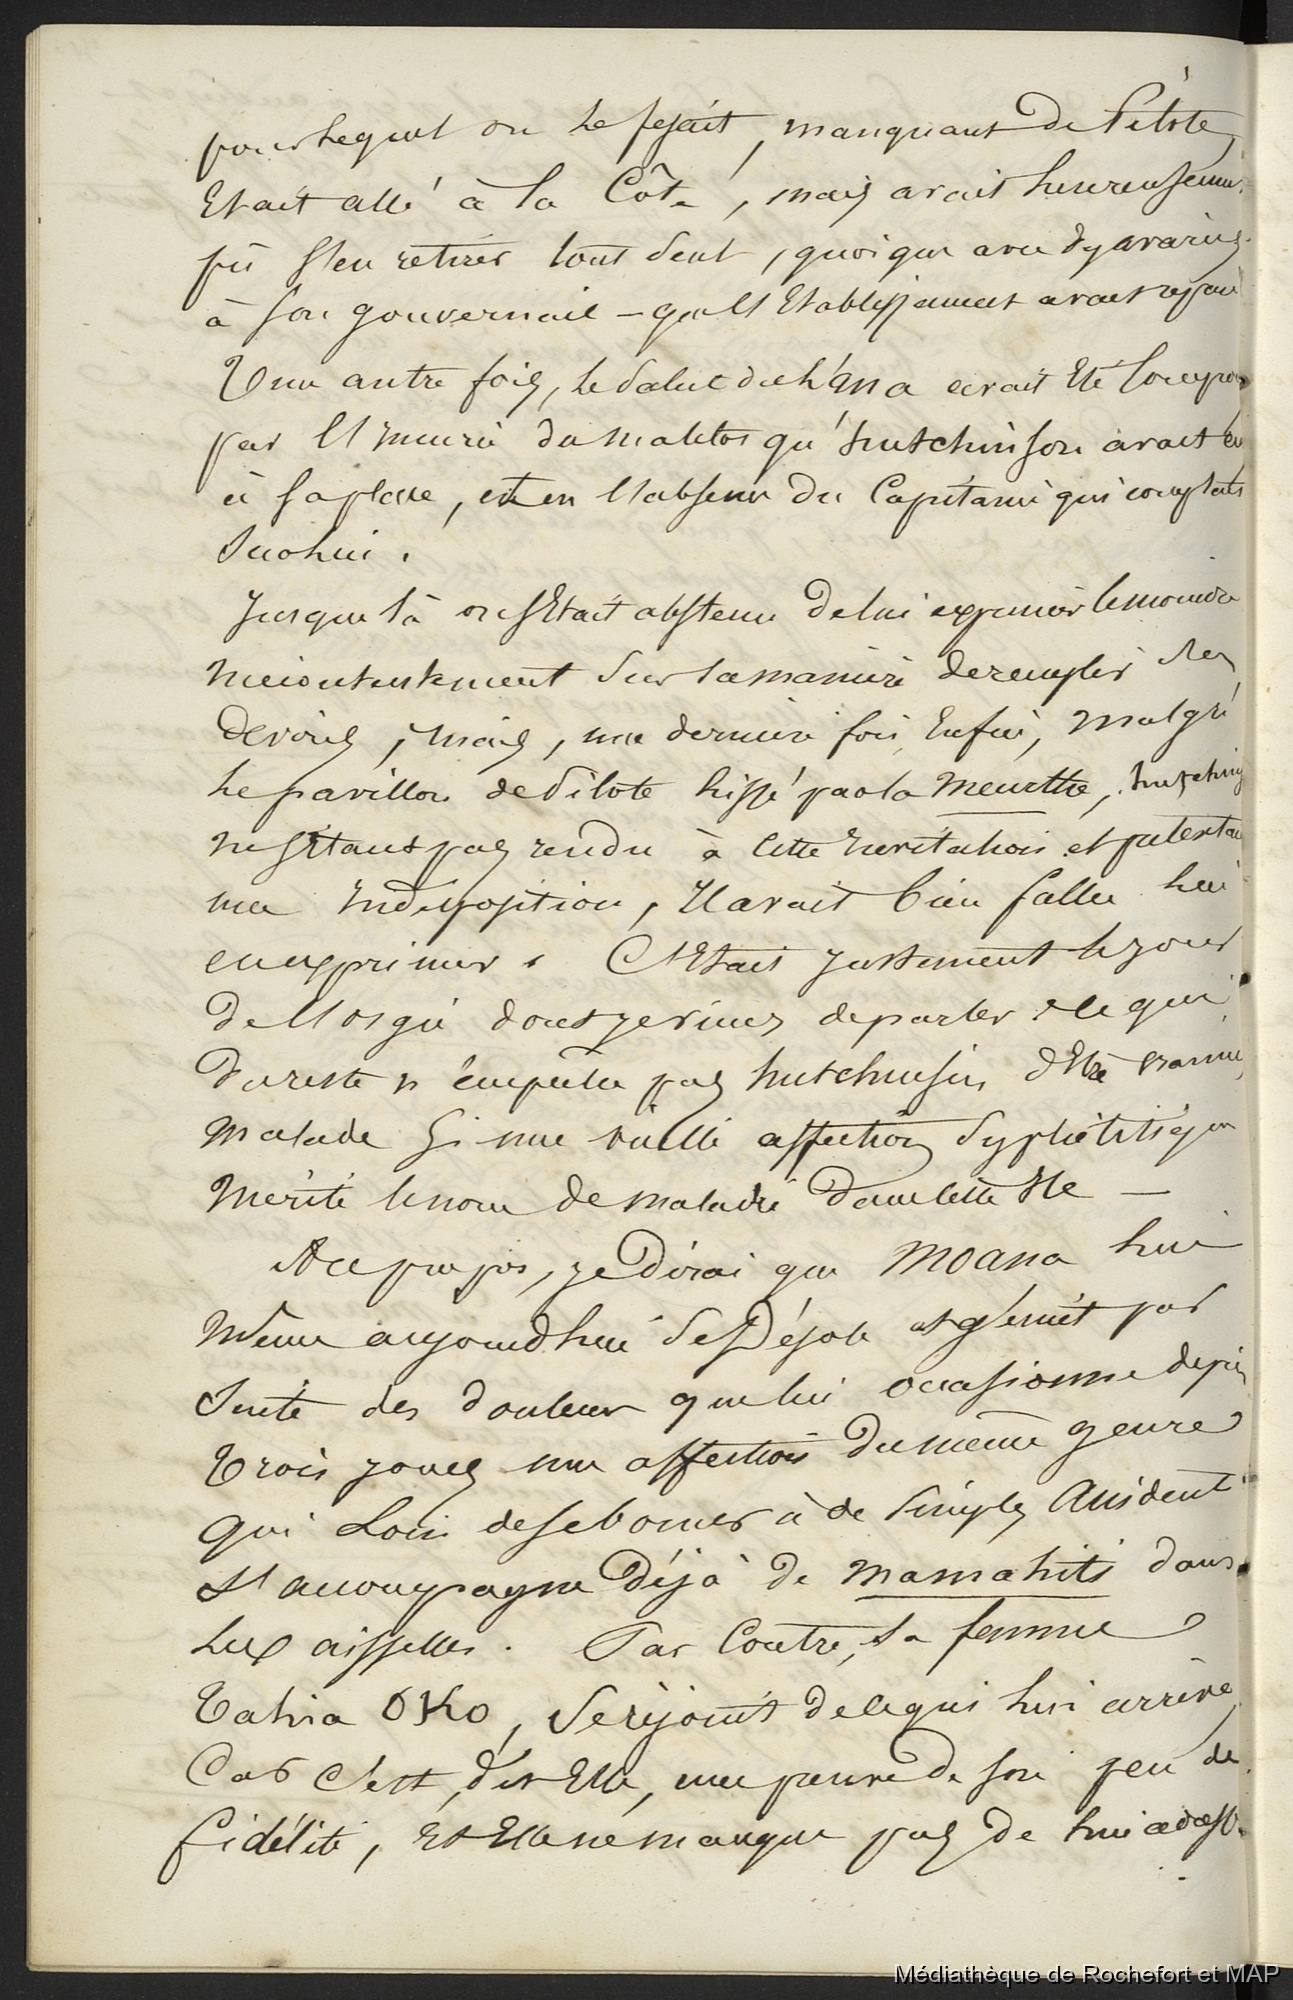 pour lequel on le fesait, manquant de Pilote,
Etait allé à la Côte, mais avait heureusemen
pû s'en retirer tout seul, quoique avec dy avaries
à son gouvernail – qu'l'Etablissement avait réparé
Une autre fois, le salut du h'ana avait été
par l'incurie du matelot qu'hutchinson avait
à sa place, et en l'absence du Capitaine qui comptait
sur lui.
Jusque là on s'Etait abstenu de lui exprimer le moindre
mécontentement sur la manière de remplir ses
devoirs, mais, une dernière fois Enfin, malgré
le pavillon de Pilote hissé par la Meurthe,
ne s'étant pas rendu à cette invitation et
une indisposition, Il avait bien fallu lui
en exprimer. C'Etait justement le jour
de l'orgie dont je viens de parler, ce qui
du reste n'empêche pas hutchinson d'Etre vraimen
malade si une vieille affection Syphilitique
mérite le nom de maladie dans cette Ile —
A ce propos, je dirai que Moana lui
même aujourd'hui se désole et gémit par
suite des douleur que lui occasionne depuis
trois jours une affection du même genre
qui Loin de se borner à de simples accident
s'accompagne Déjà de mamahiti dans
les aisselles. Par Contre, sa femme
Tahia OKo, se réjouit de ce qui lui arrive,
Car c'est, dit Elle, une preuve de son peu de
fidélité, Et Elle ne manque pas de lui
Médiathèque de Rochefort et MAP